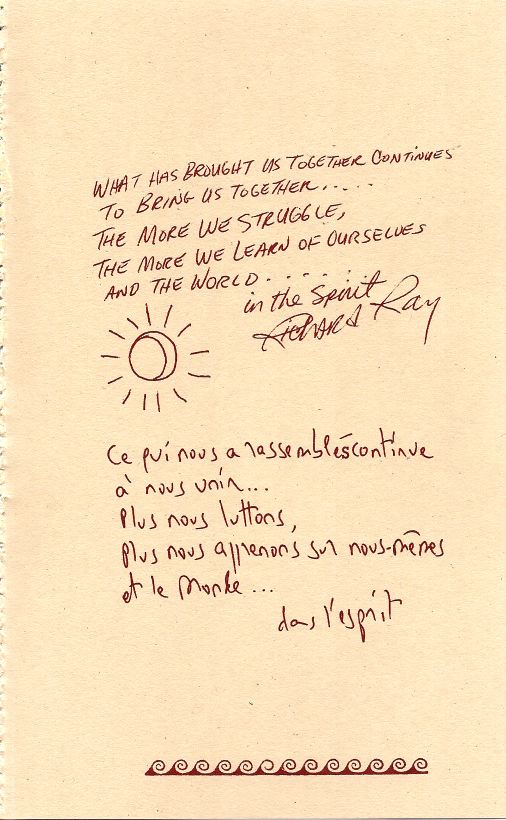 WHAT HAS BROUGHT US TOGETHER CONTINUES
TO BRING US TOGETHER.....
THE MORE WE STRUGGLE,
THE MORE WE LEARN OF OURSELVES
AND THE WORLD.......
in the Spirit
RICHARD Ray
Ce qui nous a rassemblés continue
à nous unir...
Plus nous luttons,
plus nous apprenons sur nous-mêmes
et le Monde...
dans l'esprit